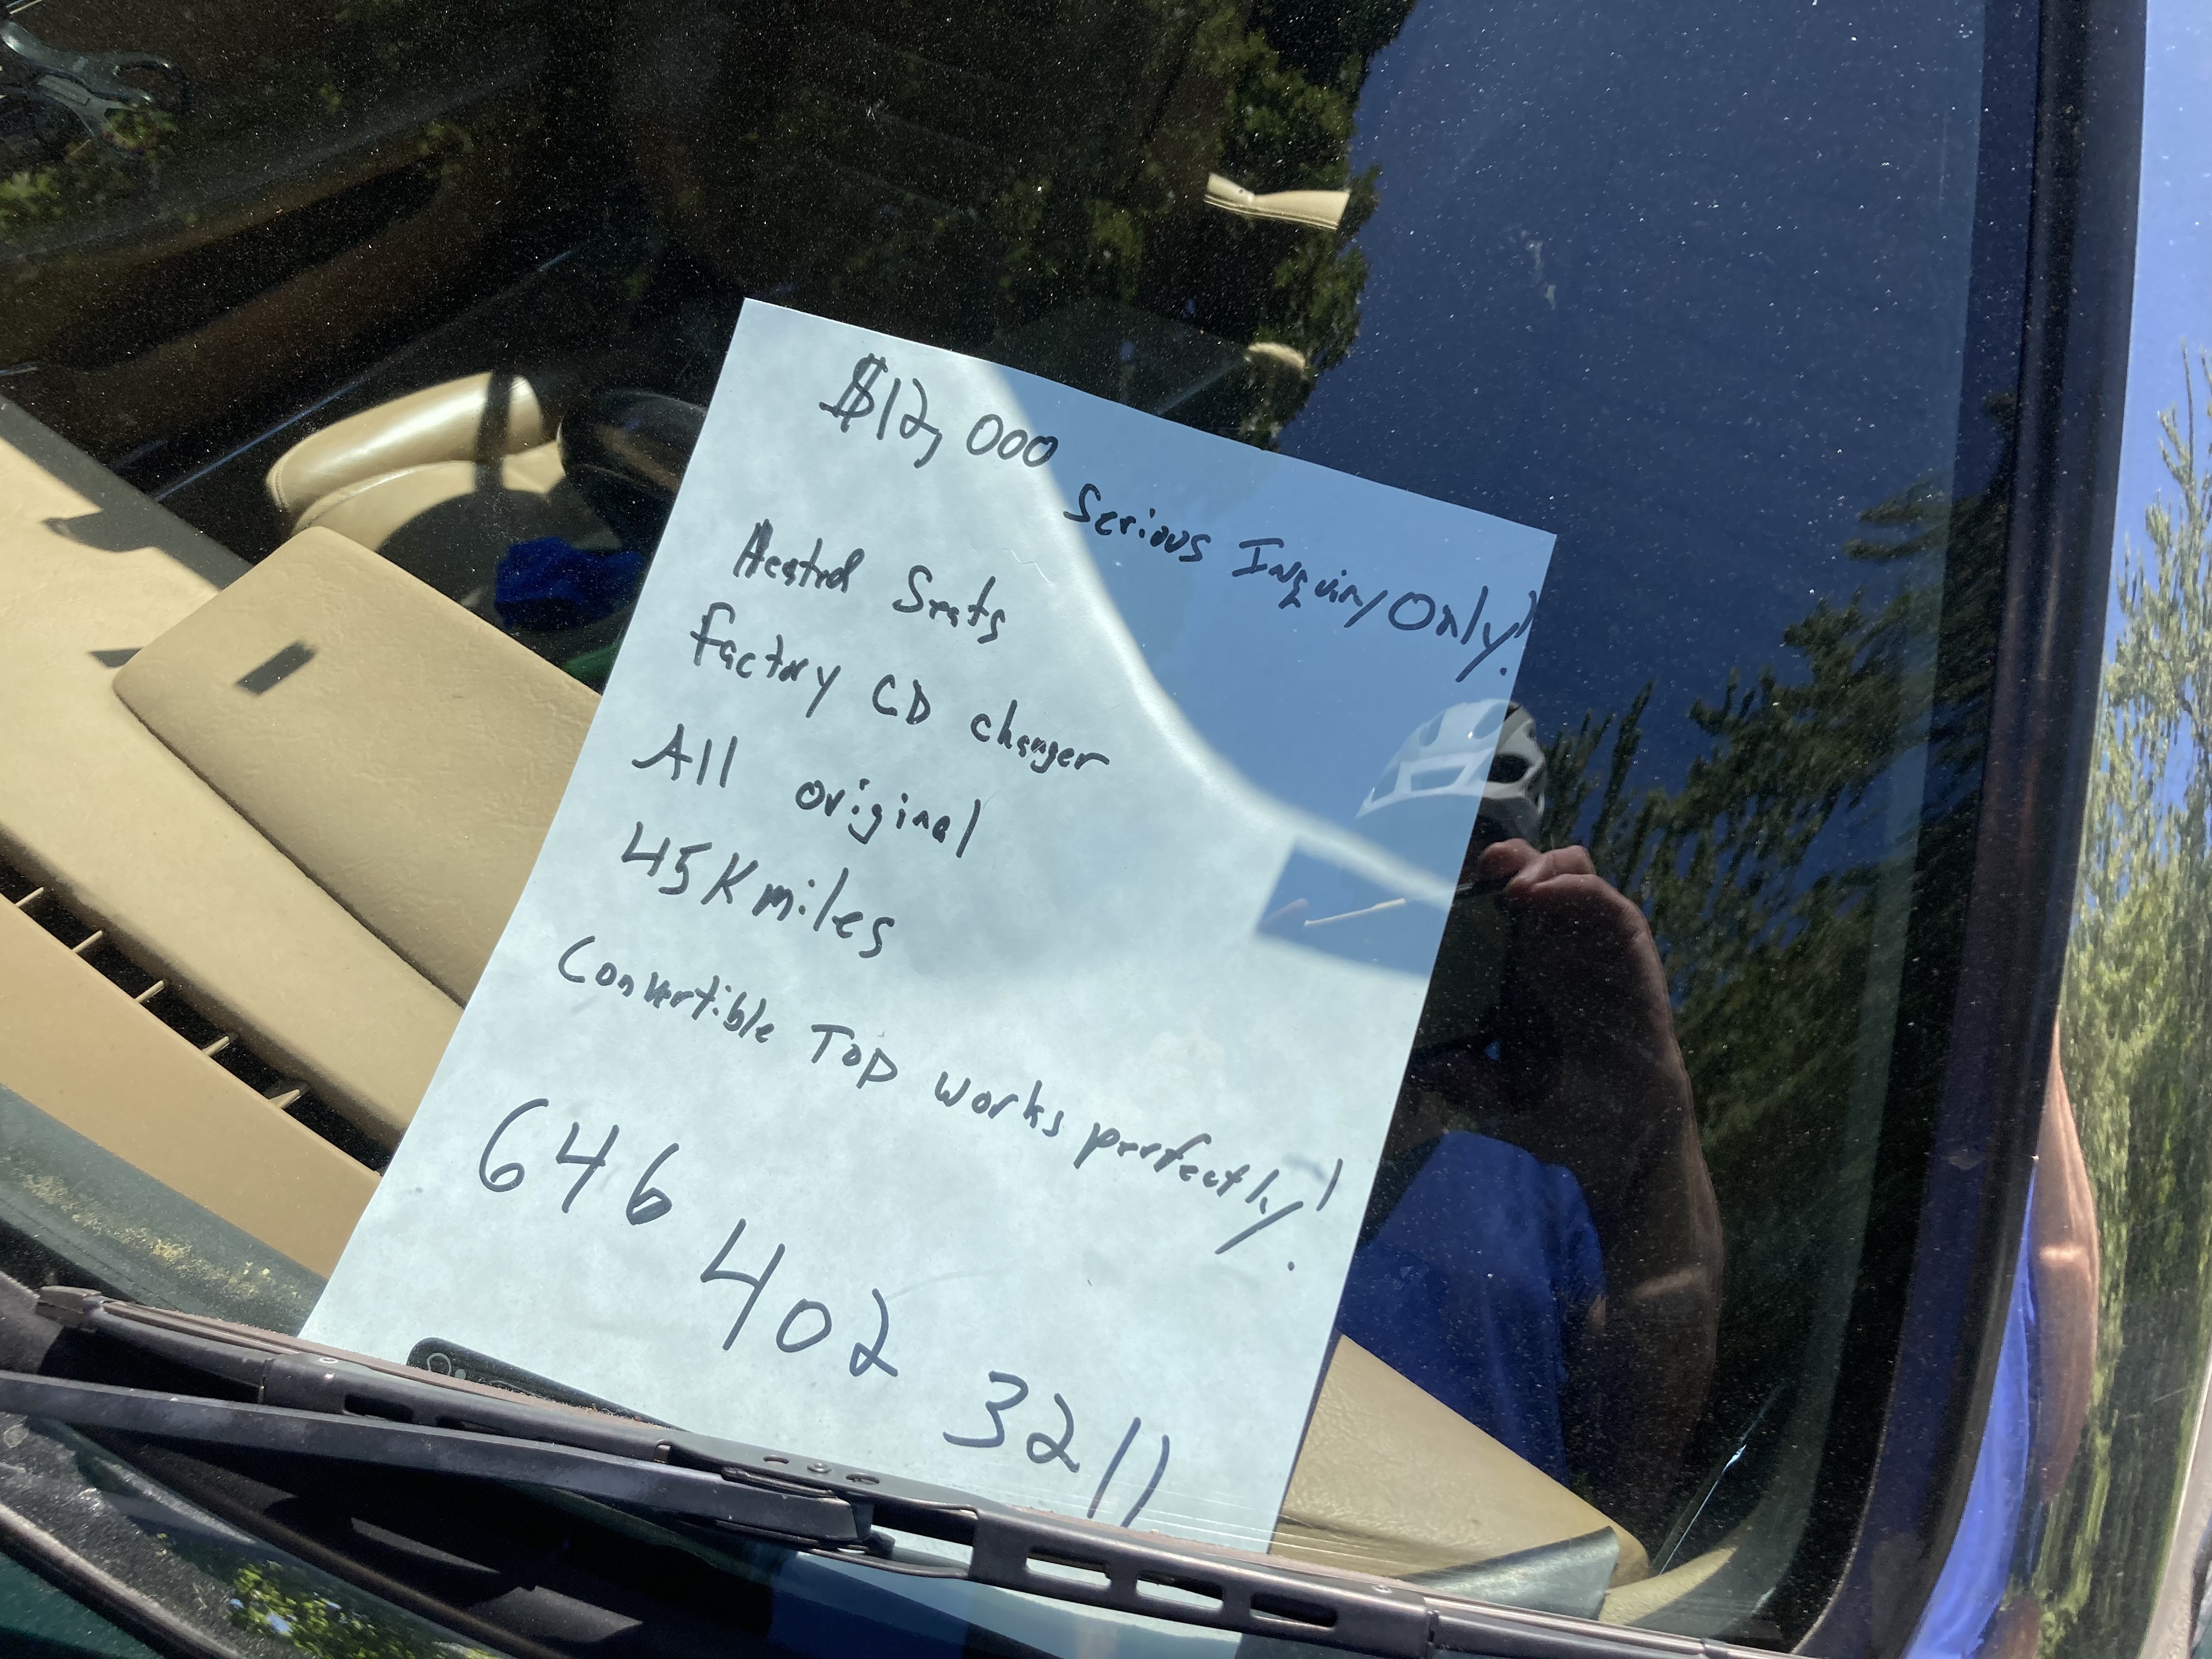 $12,000
Serious Inquiry Only!
Heated Seats
Factory CD changer
All original
45K miles
Convertible Top works perfectly!
646 402 3211